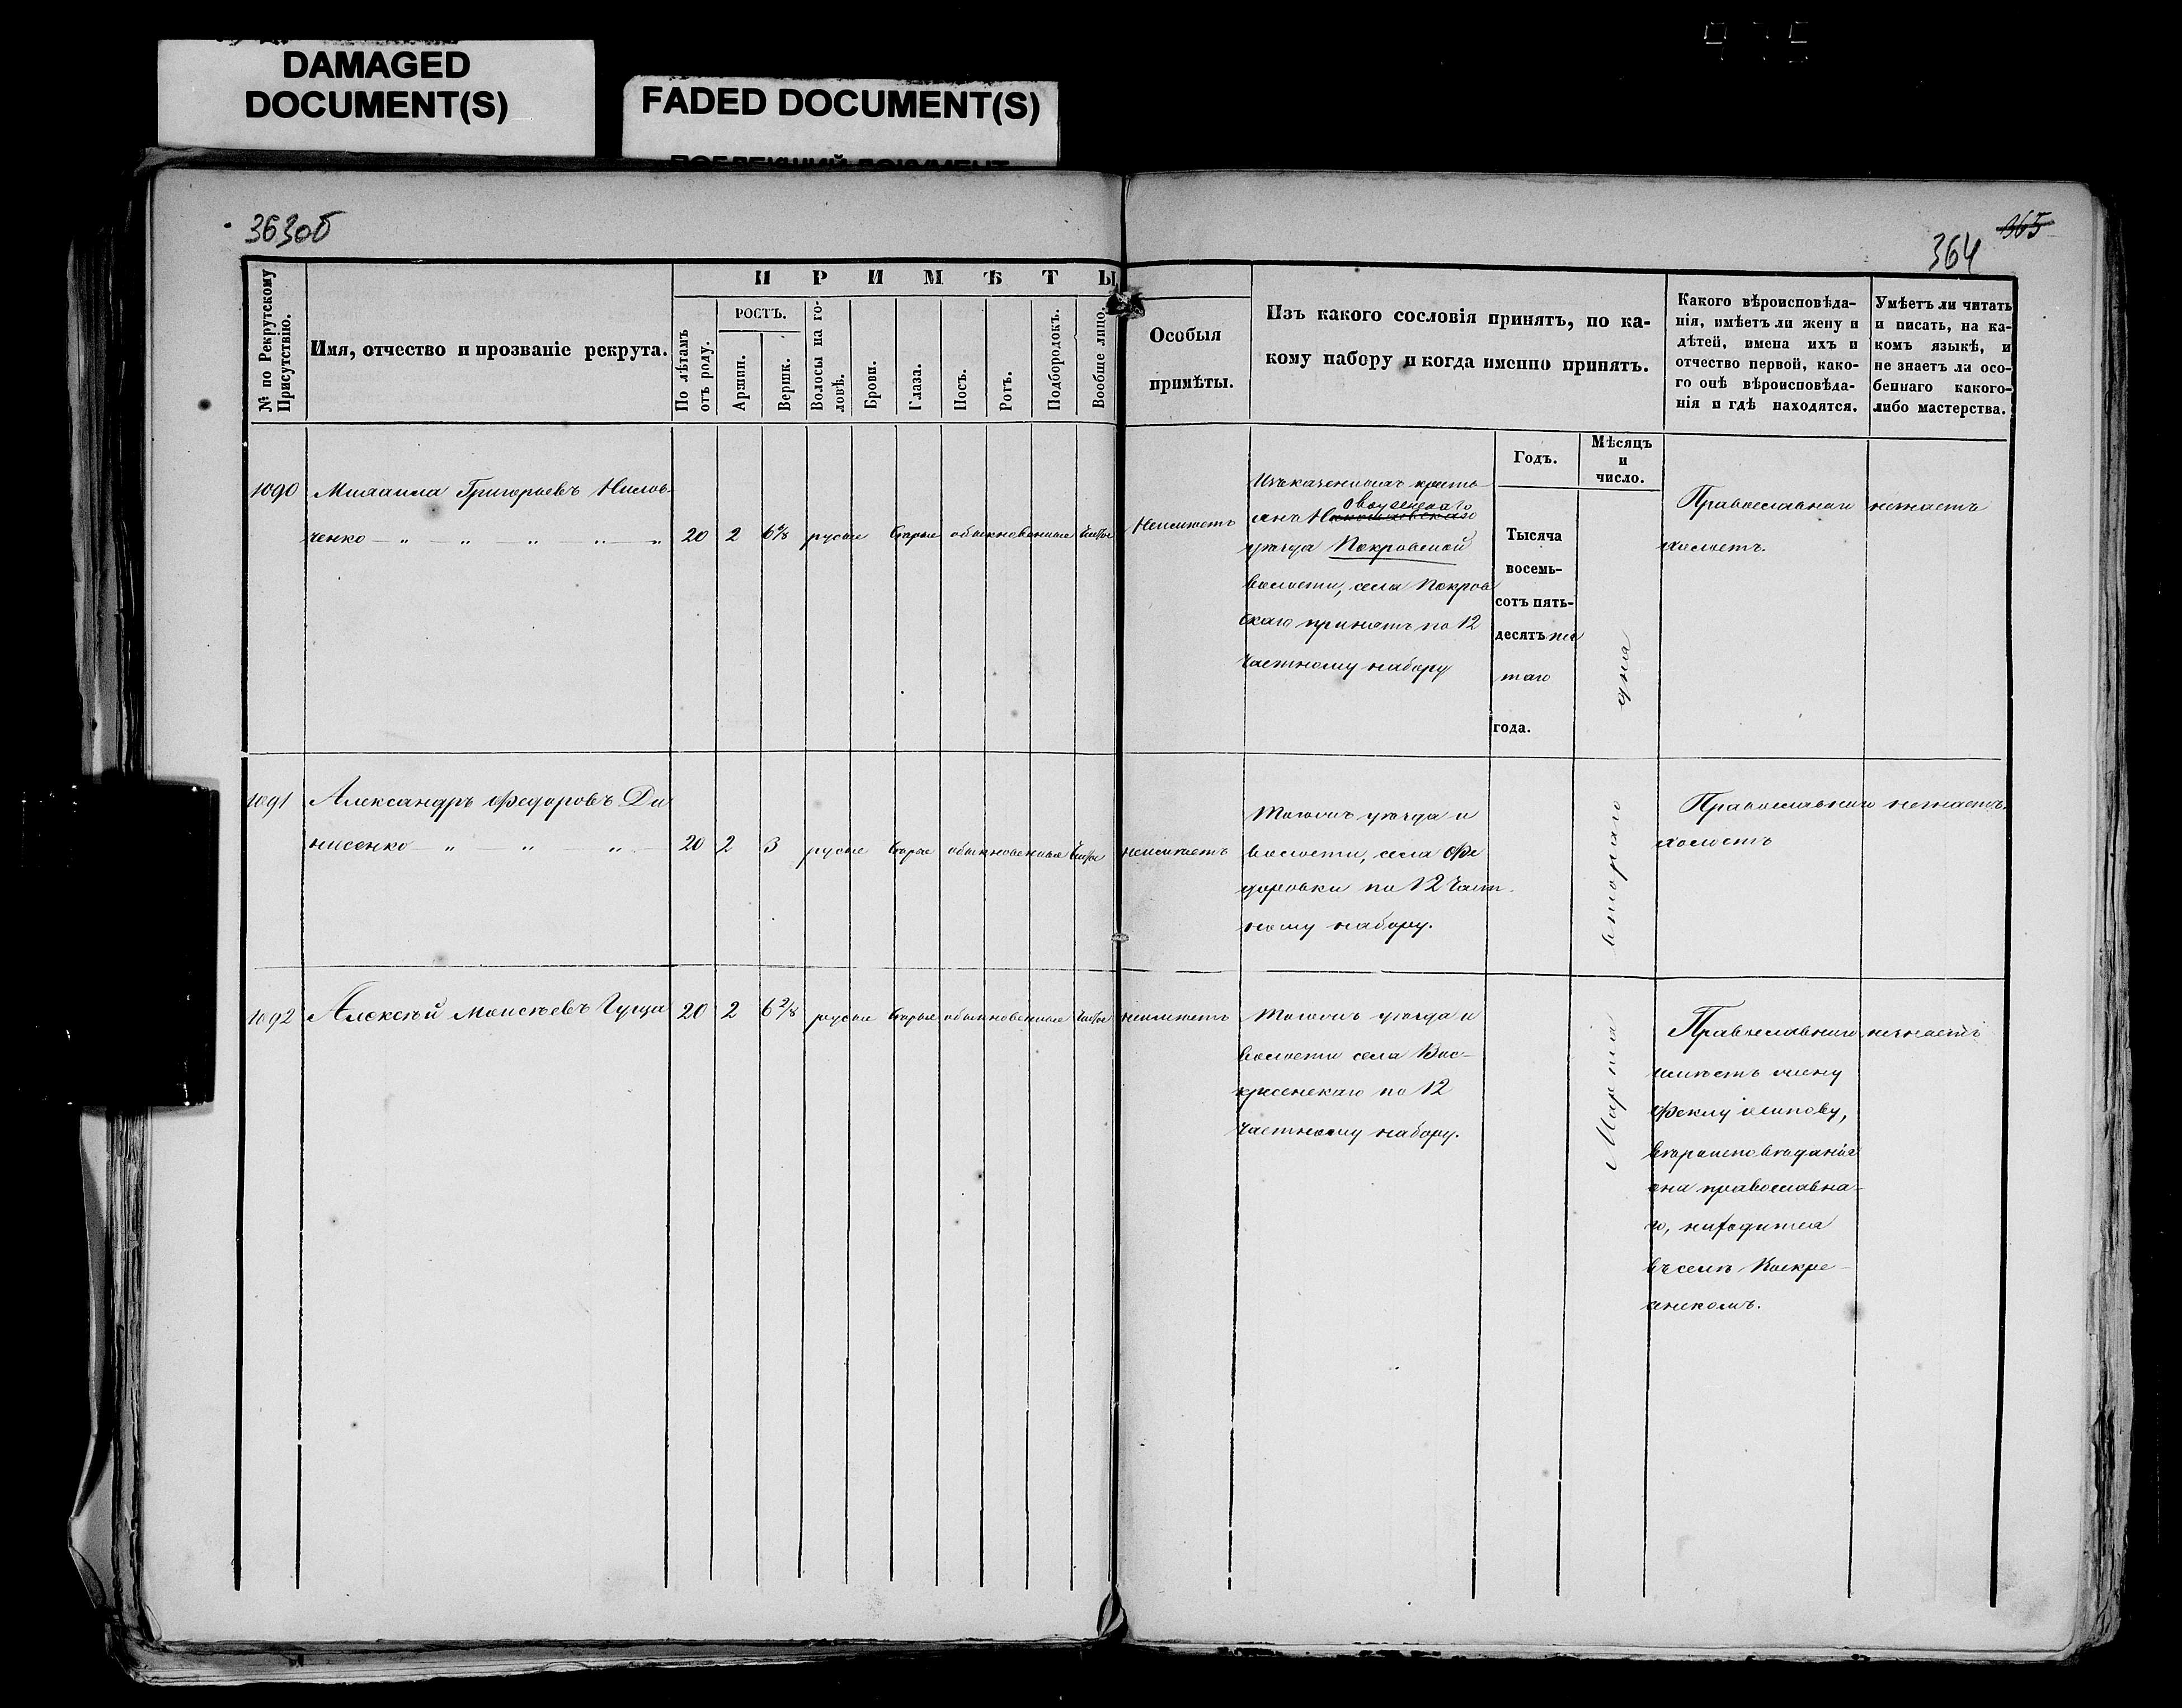 DAMAGED
DOCUMENT(S)
FADED DOCUMENT(S)
363об
365
364
№ по Рекрутскому
Присутствію.
Имя, отчество и прозваніе рекрута.
ПРИМѢТЫ
По лѣтамъ
отъ роду.
РОСТЪ.
Аршин.
Вершк.
Волосы на го-
ловѣ.
Брови.
Глаза.
Носъ.
Ротъ.
Подбородокъ.
Вообще лицо.
Особыя
примѣты.
Изъ какого сословія принятъ, по ка-
кому набору и когда именно принятъ.
Какого вѣроисповѣда-
нія, имѣетъ ли жену и
дѣтей, имена ихъ и
отчество первой, како-
го онѣ вѣроисповѣда-
нія и гдѣ находятся.
Умѣетъ ли читать
и писать, на ка-
комъ языкѣ, и
не знаетъ ли осо-
беннаго какого-
либо мастерства.
Годъ.
Мѣсяцъ
и
число.
1090
Михаила Григорьевъ
ченко
20 2 6 русые Карые обыкновенные чистое
Неимѣетъ
Изъ казенныхъ кресть
янъ
уѣзда Покровской
волости, села Покров
скаго принятъ по 12
Частному набору
Тысяча
восемь-
сотъ пять-
десятъ пя
таго
года.
дня
Православнаго
холостъ.
незнаетъ
1091
Александръ Федоровъ Де
нисенко
20 2 3 русые Карые обыкновенные Чистое
неимѣетъ
Тогожъ уѣзда и
волости, села Фе
доровки по 12 Част
ному набору.
втораго
Православнаго
холостъ
незнаетъ.
1092
Алексѣй Моисѣевъ Гуща
20 2 6 2/8 русые Карые обыкновенные чистое
неимѣетъ
Тогожъ уѣзда и
волости села Вос-
кресенскаго по 12
Частному набору.
Марта
Православнаго
имѣетъ жену
Феклу Осипову,
вѣроисповѣданія
она православна-
го, находится
въ селѣ Воскре-
сенскомъ.
незнаетъ